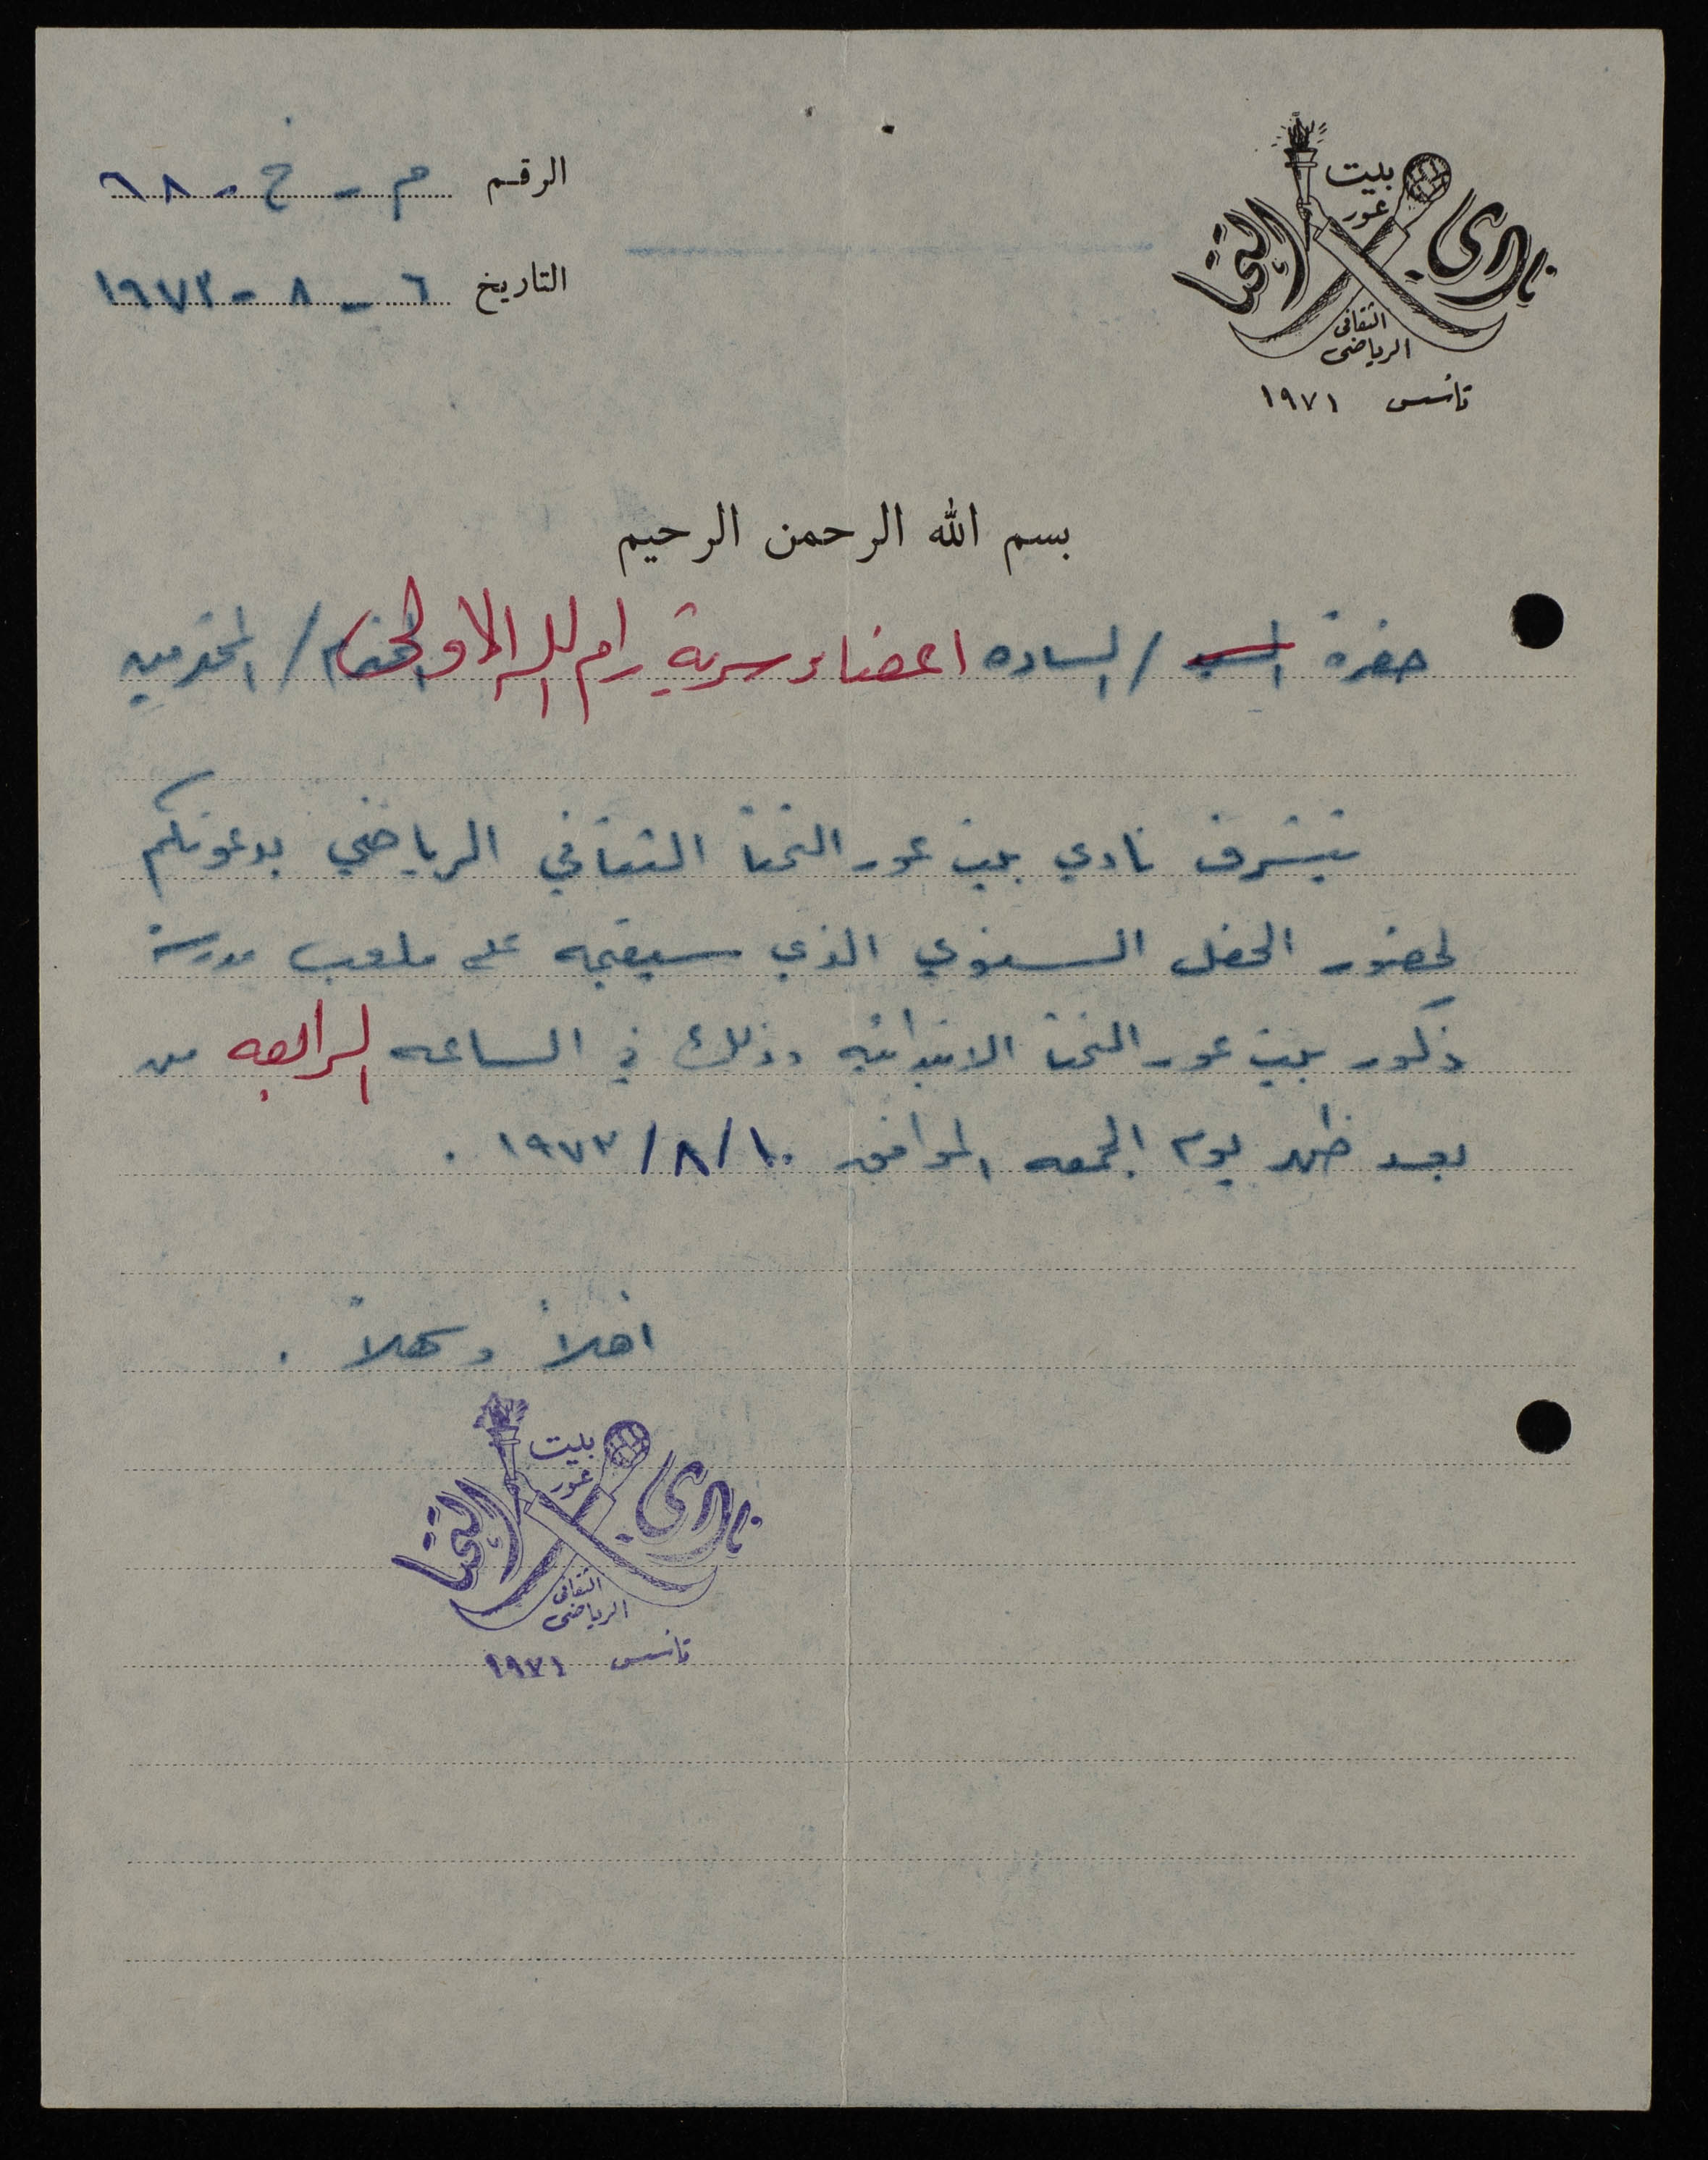 نادي بيت عور التحتا
الثقافي
الرياضي
تأسس ١٩٧١
الرقم م - خ - ٦٨
التاريخ ٦ - ٨ - ١٩٧٣
بسم الله الرحمن الرحيم
حضرة السيد / الساده اعضاء سرية رام الله الاولى / المحترمين
يتشرف نادي بيت عور التحتا الثقافي الرياضي بدعوتكم
لحضور الحفل السنوي الذي سيقيمه على ملعب مدرسة
ذكور بيت عور التحتا الابتدائيه وذلك في الساعه الرابعه من
بعد ظهر يوم الجمعه الموافق ١٠/٨/١٩٧٣ .
اهلاً وسهلاً .
نادي بيت عور التحتا
الثقافي
الرياضي
تأسس ١٩٧١